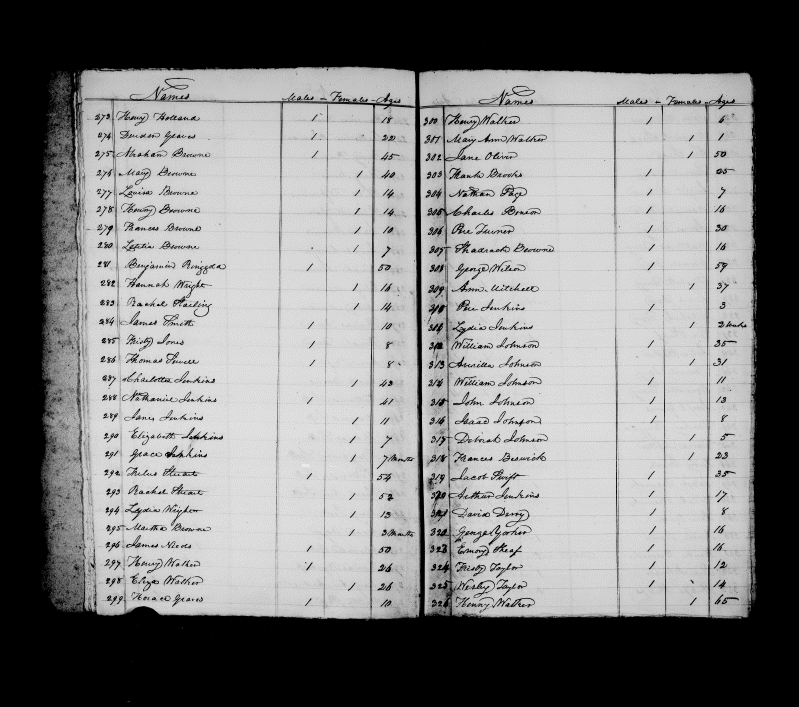 Names Males - Females - Ages
273 Henry Holland 1 18
274 Graves 1 22
275 Abraham Browne 1 45
276 Mary Browne 1 40
277 Louisa Browne 1 14
278 Henny Browne 1 14
279 Frances Browne 1 10
280 Letitia Browne 1 7
281 Benjamin Ringgda 1 50
282 Hannah Wright 1 16
283 Rachel 1 14
284 James Smith 1 10
285 Fristy Jones 1 8
286 Thomas Sewell 1 8
287 Charlotta Jenkins 1 43
288 Nathaniel Jenkins 1 41
289 Jane Jenkins 1 11
290 Elizabeth Jenkins 1 7
291 Grace Jenkins 1 7 Months
292 Stuart 1 54
293 Rachel Stuart 1 52
294 Lydia Wright 1 13
295 Martha Browne 1 3 Months
296 James 1 50
297 Henry Walker 1 26
298 Eliza Walker 1 26
299 Horace Graves 1 10
Names Males - Females - Ages
300 Henry Walker 1 6
301 Mary Ann Walker 1 1
302 Jane Oliver 1 50
303 Frank Brooks 1 25
304 Nathan Page 1 7
305 Charles Benson 1 16
306 Pere 1 30
307 Shadrach Browne 1 16
308 George Wilson 1 59
309 Ann Mitchell 1 37
310 Pere Jenkins 1 3
311 Lydia Jenkins 1 2 weeks
312 William Johnson 1 35
313 Johnson 1 31
314 William Johnson 1 11
315 John Johnson 1 13
316 Isaac Johnson 1 8
317 Deborah Johnson 1 5
318 Frances Beswick 1 23
319 Jacob Swift 1 35
320 Arthur Jenkins 1 17
321 David Derry 1 8
322 George 1 16
323 Emory 1 16
324 Fristy Taylor 1 12
325 Wesley Taylor 1 14
326 Henny Walker 1 65